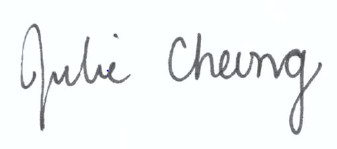 Julie Cheung